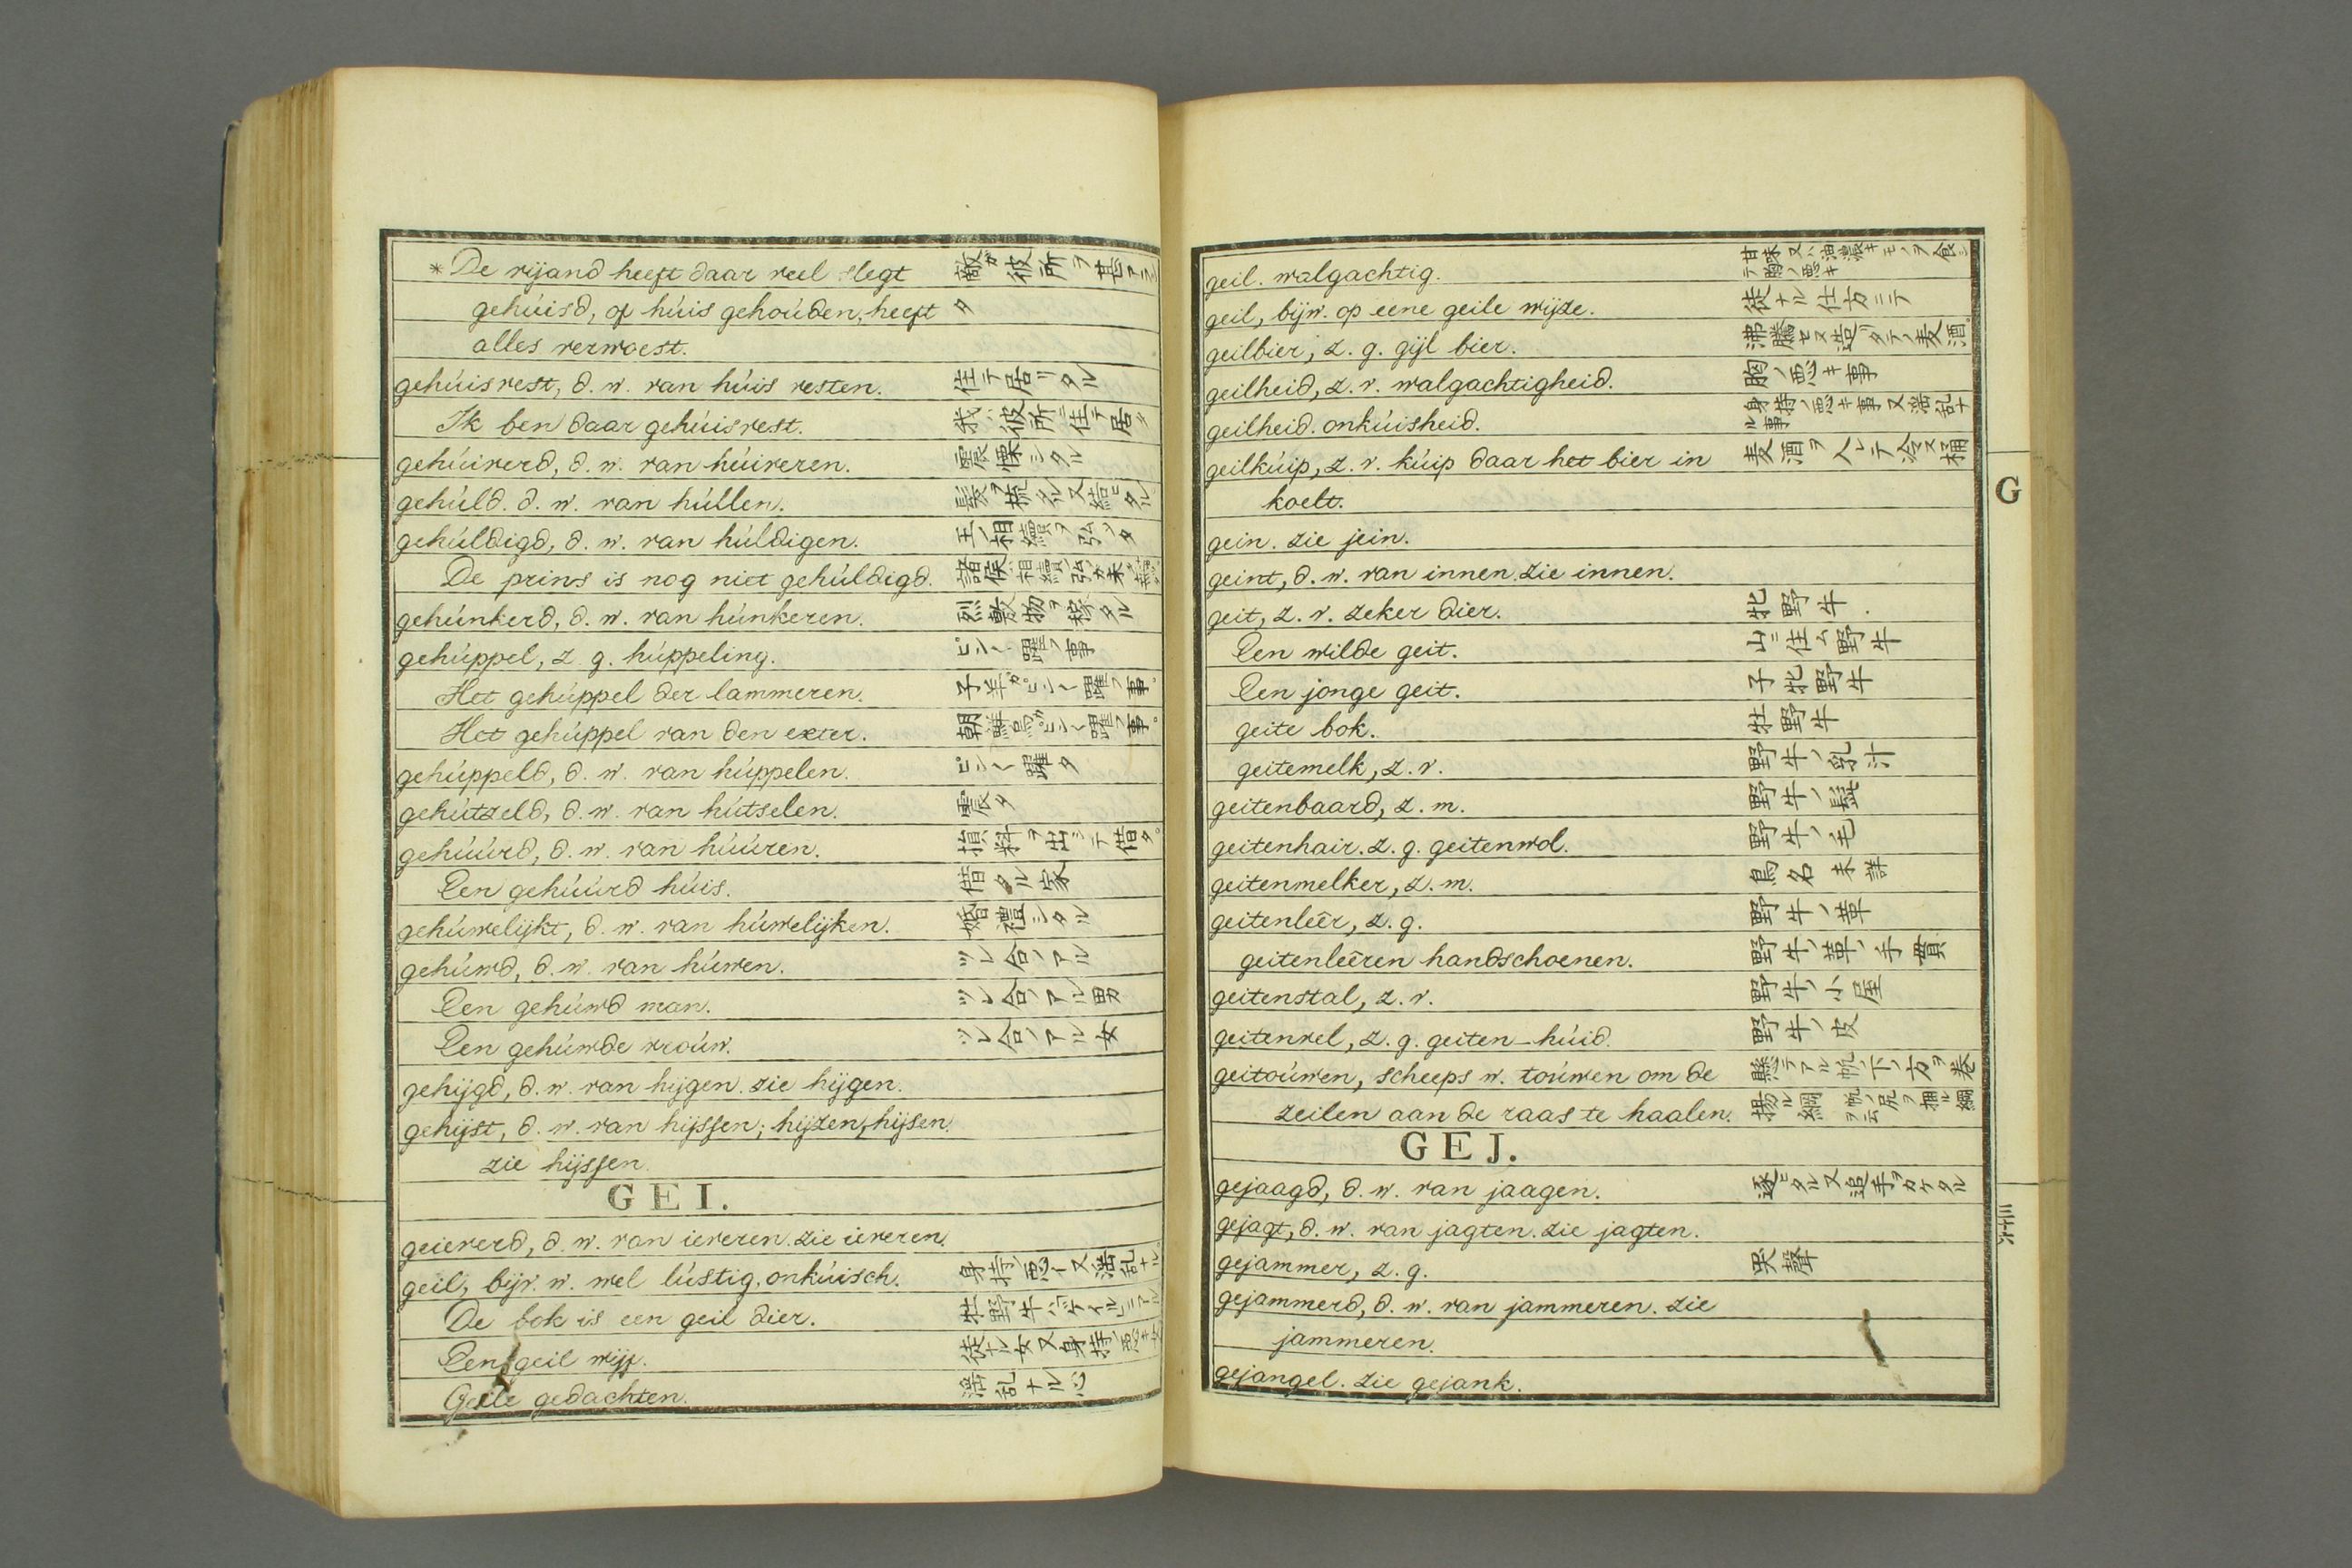 * De vijand heeft daar veel slegt 敵ガ彼所ヲ甚アラシ
gehúisd, of húis gehoúden, heeft タ
alles verwoest.
gehúisvest, d. w. van húis vesten. 住テ居リタル
Ik ben daar gehúisvest. 我ハ彼所ニ住テ居タ
gehúiverd, d. w. van húiveren. 震慄シタル
gehúld. d. w. van húllen. 髪ヲ梳タル又結ヒタル
gehúldigd, d. w. van húldigen. 王ノ相續ヲ弘メタ
De prins is nog niet gehúldigd. 諸侯ノ相續ノ弘カ未
gehúnkerd, d. w. van húnkeren. 烈敷物ヲ稼タル
gehúppel, z g. húppeling. ピン〱躍フ事
Het gehúppel der lammeren. 子羊ガピン〱躍フ事。
Het gehúppel van den exter. 朝鮮烏ガピン〱躍フ事。
gehúppeld, d. w. van húppelen. ピン〱躍タ
gehútzeld, d. w. van hútselen. 震タ
gehúúrd, d. w. van húúren. 損料ヲ出シテ借タ。
Een gehúúrd húis. 借タル家
gehúwelijkt, d. w. van húwelijken. 婚禮シタル
gehúwd, d. w. van húwen. ツレ合ノアル
Een gehúwd man. ツレ合ノアル男
Een gehúwde vroúw. ツレ合ノアル女
gehijgd, d. w. van hijgen. zie hijgen.
gehijst, d. w. van hijssen; hijzen, hijsen.
zie hijssen.
GEI.
geieverd, d. w. van ieveren. zie ieveren.
geil, bijv. w. wel lústig, onkúisch. 身持ノ悪イ又滛乱ナル。
De bok is een geil dier. 牡野牛ハゲイルニアル
Een geil wijf. 徒ナル女又身持ノ悪キ女
Geile gedachten. 滛乱ナル心
geil. walgachtig. 甘味又ハ油濃キモノヲ食シテ胸ノ悪キ
geil, bijw. op eene geile wijze. 徒ナル仕方ニテ
geilbier, z. g. gijl bier. 沸騰セヌ造リタテノ麦酒。
geilheid, z. v. walgachtigheid. 胸ノ悪キ事
geilheid. onkúisheid. 身持ノ悪キ事又滛乱ナル事
geilkúip, z. v. kúip daar het bier in 麦酒ヲ入レテ冷ス桶
koelt.
gein. zie jein.
geint, d. w. van innen. zie innen.
geit, z. v. zeker dier. 牝野牛.
Een wilde geit. 山ニ住ム野牛
Een jonge geit. 子牝野牛
geite bok. 牡野牛
geitemelk, z. v. 野牛ノ乳汁
geitenbaard, z. m. 野牛ノ髭
geitenhair. z. g. geitenwol. 野牛ノ毛
geitenmelker, z. m. 鳥名 未詳
geitenleêr, z. g. 野牛ノ革
geitenleêren handschoenen. 野牛ノ革ノ手貫
geitenstal, z. v. 野牛ノ小屋
geitenvel, z. g. geiten-húid. 野牛ノ皮
geitoúwen, scheeps w. toúwen om de 懸テアル帆ノ下ノ方ヲ巻
zeilen aan de raas te haalen. 揚ル綱
GEJ.
gejaagd, d. w. van jaagen. 逐ヒタル又追手ヲカケタル
gejagt, d. w. van jagten. zie jagten.
gejammer, z. g. 哭聲
gejammerd, d. w. van jammeren. zie
jammeren.
gejangel. zie gejank.
G